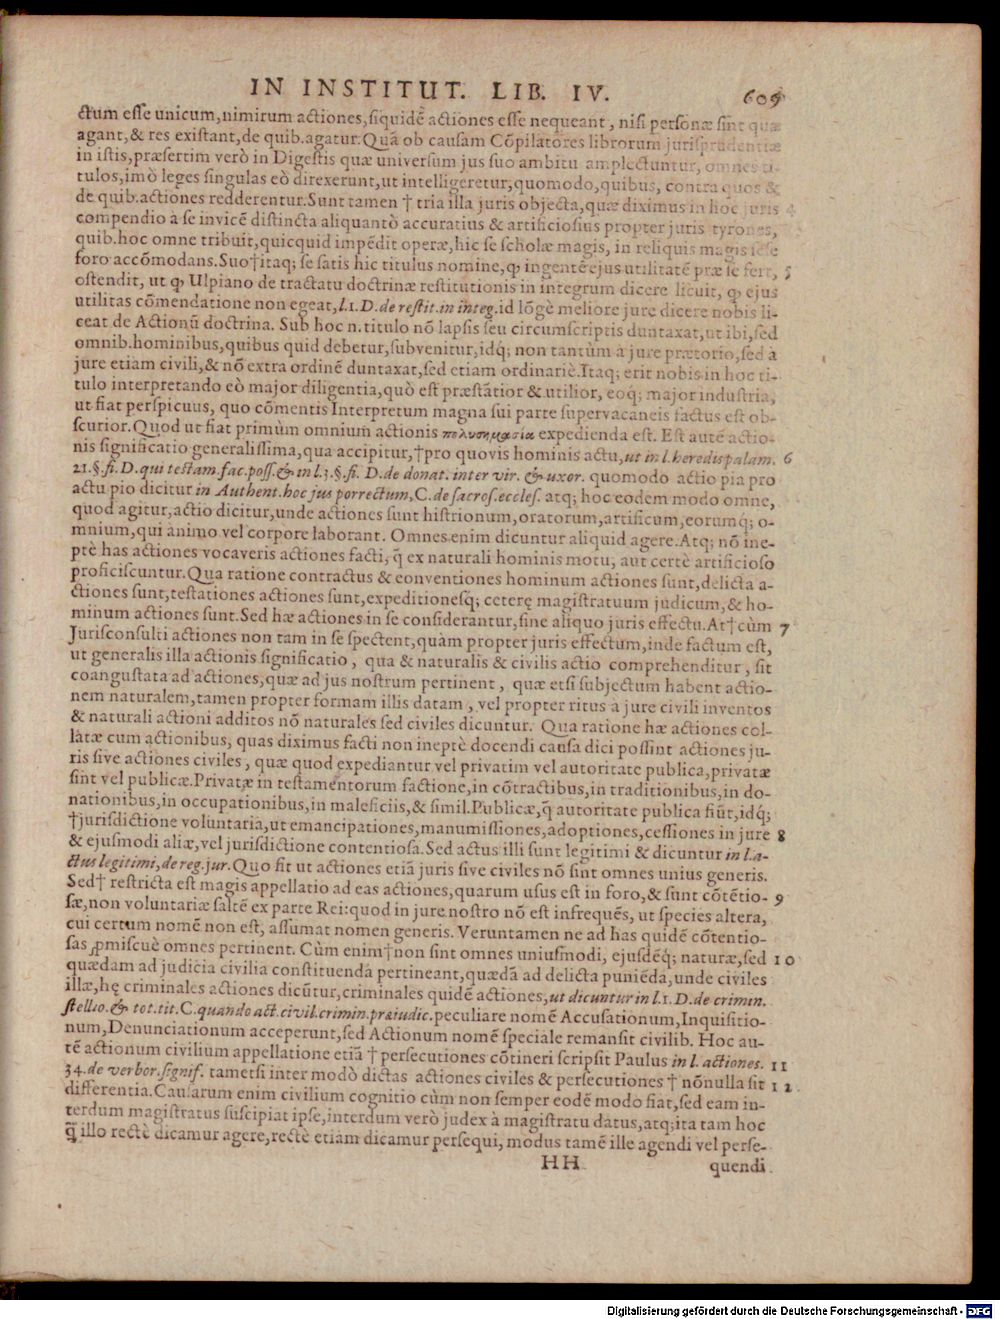 IN INSTITUT. LIB. IV. 609
ctum esse unicum, nimirum actiones, siquidē actiones esse nequeant, nisi personæ sint quæ
agant, & res existant, de quib. agatur. Quā ob causam Cōpilatores librorum jurisprudentiæ
in istis, præsertim verò in Digestis quæ universum jus suo ambitu amplectuntur, omnes ti-
tulos, imò leges singulas eò direxerunt, ut intelligeretur, quomodo, quibus, contra quos &
de quib. actiones redderentur. Sunt tamen † tria illa juris objecta, quæ diximus in hoc juris 4
compendio a se invicē distincta aliquantò accuratius & artificiosius propter juris tyrones,
quib. hoc omne tribuit, quicquid impēdit operæ, hic se scholæ magis, in reliquis magis sese
foro accōmodans. Suo † itaq; se satis hic titulus nomine, ꝙ ingentē ejus utilitatē præ se fert, 5
ostendit, ut ꝙ Ulpiano de tractatu doctrinæ restitutionis in integrum dicere licuit, ꝙ ejus
utilitas cōmendatione non egeat, l. 1. D. de restit. in integ. id lōgè meliore jure dicere nobis li-
ceat de Actionū doctrina. Sub hoc n. titulo nō lapsis seu circumscriptis duntaxat, ut ibi, sed
omnib. hominibus, quibus quid debetur, subvenitur, idq; non tantùm à jure prætorio, sed à
jure etiam civili, & nō extra ordinē duntaxat, sed etiam ordinariè. Itaq; erit nobis in hoc ti-
tulo interpretando eò major diligentia, quò est præstātior & utilior, eoq; major industria,
ut fiat perspicuus, quo cōmentis Interpretum magna sui parte supervacaneis factus est ob-
scurior. Quod ut fiat primùm omnium actionis πολυσημασία expedienda est. Est autē actio-
nis significatio generalissima, qua accipitur, † pro quovis hominis actu, ut in l. heredis palam. 6
21. §. fi. D. qui testam. fac. poss. & in l. 3. §. fi. D. de donat. inter vir. & uxor. quomodo actio pia pro
actu pio dicitur in Authent. hoc jus porrectum, C. de sacros. eccles. atq; hoc eodem modo omne,
quod agitur, actio dicitur, unde actiones sunt histrionum, oratorum, artificum, eorumq; o-
mnium, qui animo vel corpore laborant. Omnes enim dicuntur aliquid agere. Atq; nō ine-
ptè has actiones vocaveris actiones facti, q̄ ex naturali hominis motu, aut certè artificioso
proficiscuntur. Qua ratione contractus & conventiones hominum actiones sunt, delicta a-
ctiones sunt, testationes actiones sunt, expeditionesq́; ceterę magistratuum judicum, & ho-
minum actiones sunt. Sed hæ actiones in se considerantur, sine aliquo juris effectu. At † cùm 7
Jurisconsulti actiones non tam in se spectent, quàm propter juris effectum, inde factum est,
ut generalis illa actionis significatio, qua & naturalis & civilis actio comprehenditur, sit
coangustata ad actiones, quæ ad jus nostrum pertinent, quæ etsi subjectum habent actio-
nem naturalem, tamen propter formam illis datam, vel propter ritus à jure civili inventos
& naturali actioni additos nō naturales sed civiles dicuntur. Qua ratione hæ actiones col-
latæ cum actionibus, quas diximus facti non ineptè docendi causa dici possint actiones ju-
ris sive actiones civiles, quæ quod expediantur vel privatim vel autoritate publica, privatæ
sint vel publicæ. Privatæ in testamentorum factione, in cōtractibus, in traditionibus, in do-
nationibus, in occupationibus, in maleficiis, & simil. Publicæ, q̄ autoritate publica fiūt, idq́;
† jurisdictione voluntaria, ut emancipationes, manumissiones, adoptiones, cessiones in jure 8
& ejusmodi aliæ, vel jurisdictione contentiosa. Sed actus illi sunt legitimi & dicuntur in l. a-
ctus legitimi, de reg. jur. Quo fit ut actiones etiā juris sive civiles nō sint omnes unius generis.
Sed † restricta est magis appellatio ad eas actiones, quarum usus est in foro, & sunt cōtētio- 9
sæ, non voluntariæ saltē ex parte Rei: quod in jure nostro nō est infrequēs, ut species altera,
cui certum nomē non est, assumat nomen generis. Veruntamen ne ad has quidē cōtentio-
sas ꝓmiscuè omnes pertinent. Cùm enim † non sint omnes uniusmodi, ejusdēq́; naturæ, sed 10
quædam ad judicia civilia constituenda pertineant, quædā ad delicta puniēda, unde civiles
illæ, hę criminales actiones dicūtur, criminales quidē actiones, ut dicuntur in l. 1. D. de crimin.
stellio. & tot. tit. C. quando act. civil. crimin. præiudic. peculiare nomē Accusationum, Inquisitio-
num, Denunciationum acceperunt, sed Actionum nomē speciale remansit civilib. Hoc au-
tē actionum civilium appellatione etiā † persecutiones cōtineri scripsit Paulus in l. actiones. 11
34. de verbor. signif. tametsi inter modò dictas actiones civiles & persecutiones † nōnulla sit 12
differentia. Causarum enim civilium cognitio cùm non semper eodē modo fiat, sed eam in-
terdum magistratus suscipiat ipse, interdum verò judex à magistratu datus, atq; ita tam hoc
q̄̃ illo rectè dicamur agere, rectè etiam dicamur persequi, modus tamē ille agendi vel perse-
HH quendi
Digitalisierung gefördert durch die Deutsche Forschungsgemeinschaft - DFG